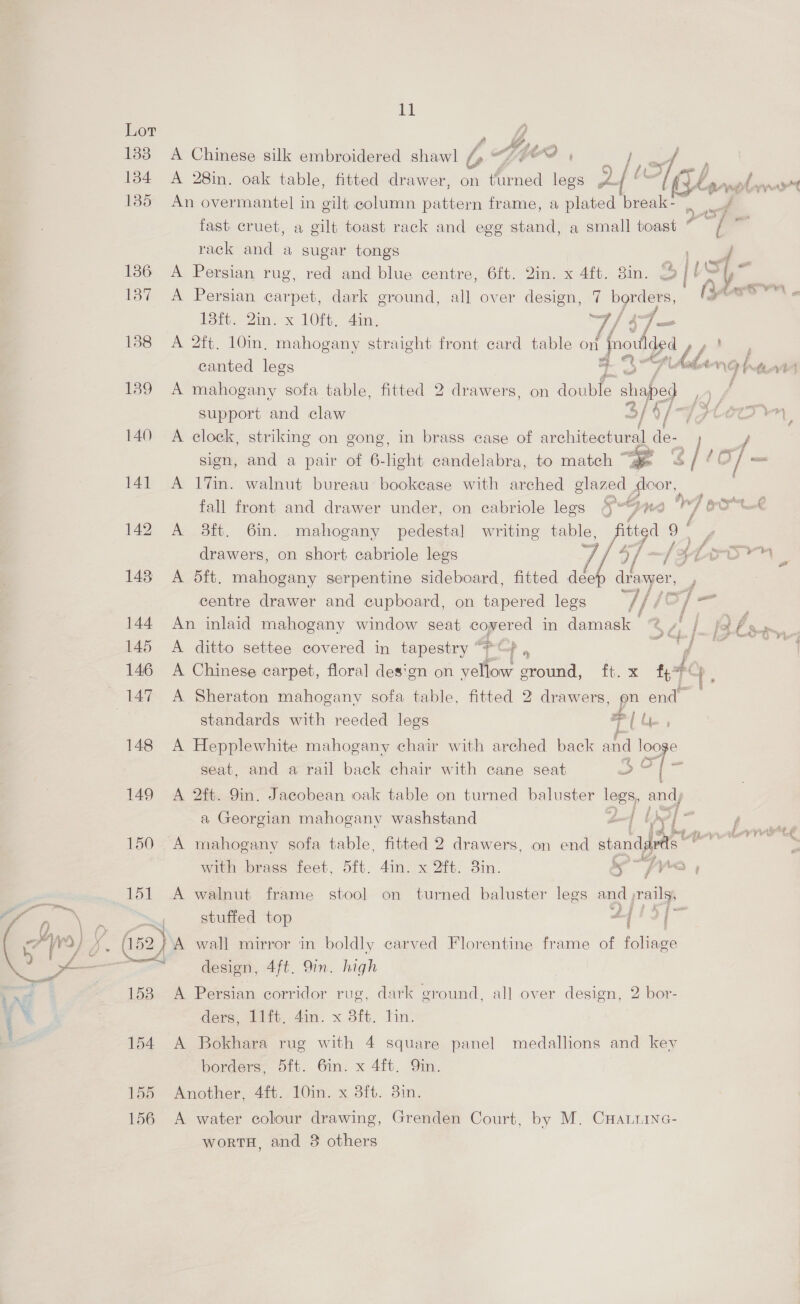 11
Lot
133 A Chinese silk embroidered shawl
134 A 28in. oak table, fitted drawer, on turned legs
135 An overmantel in gilt column pattern frame, a plated break-
fast cruet, a gilt toast rack and egg stand, a small toast
rack and a sugar tongs
136 A Persian rug, red and blue centre, 6ft. 2in. x 4ft. 3in.
137 A Persian carpet, dark ground, all over design, 7 borders,
13ft. 2in. x 10ft. 4in.
138 A 2ft. 10in. mahogany straight front card table on moulded
canted legs
139 A mahogany sofa table, fitted 2 drawers, on double shaped
support and claw
140 A clock, striking on gong, in brass case of architectural de-
sign, and a pair of 6-light candelabra, to match
141 A 17in. walnut bureau bookcase with arched glazed door,
fall front and drawer under, on cabriole legs
142 A 3ft. 6in. mahogany pedestal writing table, fitted 9
drawers, on short cabriole legs
143 A 5ft. mahogany serpentine sideboard, fitted deep drawer,
centre drawer and cupboard, on tapered legs
144 An inlaid mahogany window seat covered in damask
145 A ditto settee covered in tapestry
146 A Chinese carpet, floral design on yellow ground, ft. x ft.
147 A Sheraton mahogany sofa table, fitted 2 drawers, on end
standards with reeded legs
148 A Hepplewhite mahogany chair with arched back and loose
seat, and a rail back chair with cane seat
149 A 2ft. 9in. Jacobean oak table on turned baluster legs, and
a Georgian mahogany washstand
150 A mahogany sofa table, fitted 2 drawers, on end standards
with brass feet, 5ft. 4in. x 2ft. 3in.
151 A walnut frame stool on turned baluster legs and rails,
stuffed top
152 A wall mirror in boldly carved Florentine frame of foliage
design, 4ft. 9in. high
153 A Persian corridor rug, dark ground, all over design, 2 bor-
ders, 11ft. 4in. x 3ft. 1in.
154 A Bokhara rug with 4 square panel medallions and key
borders, 5ft. 6in. x 4ft. 9in.
155 Another, 4ft. 10in. x 3ft. 3in.
156 A water colour drawing, Grenden Court, by M. CHALLING-
WORTH, and 3 others